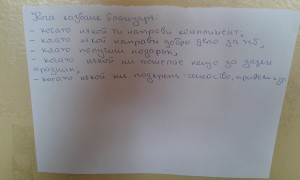 Кога казваме благодаря:
- когато някой ти направи комплимент,
- когато някой направи добро дело за теб,
- когато получиш подарък,
- когато някой ни пожелае нещо за даден
празник,
- когато някой ни подкрепя - семейство,